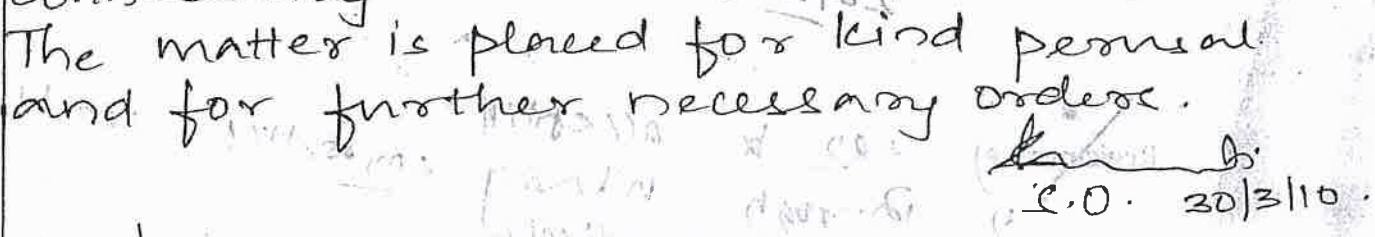 The matter is placed for kind perusal
and for further necessary orders.
30/3/10.